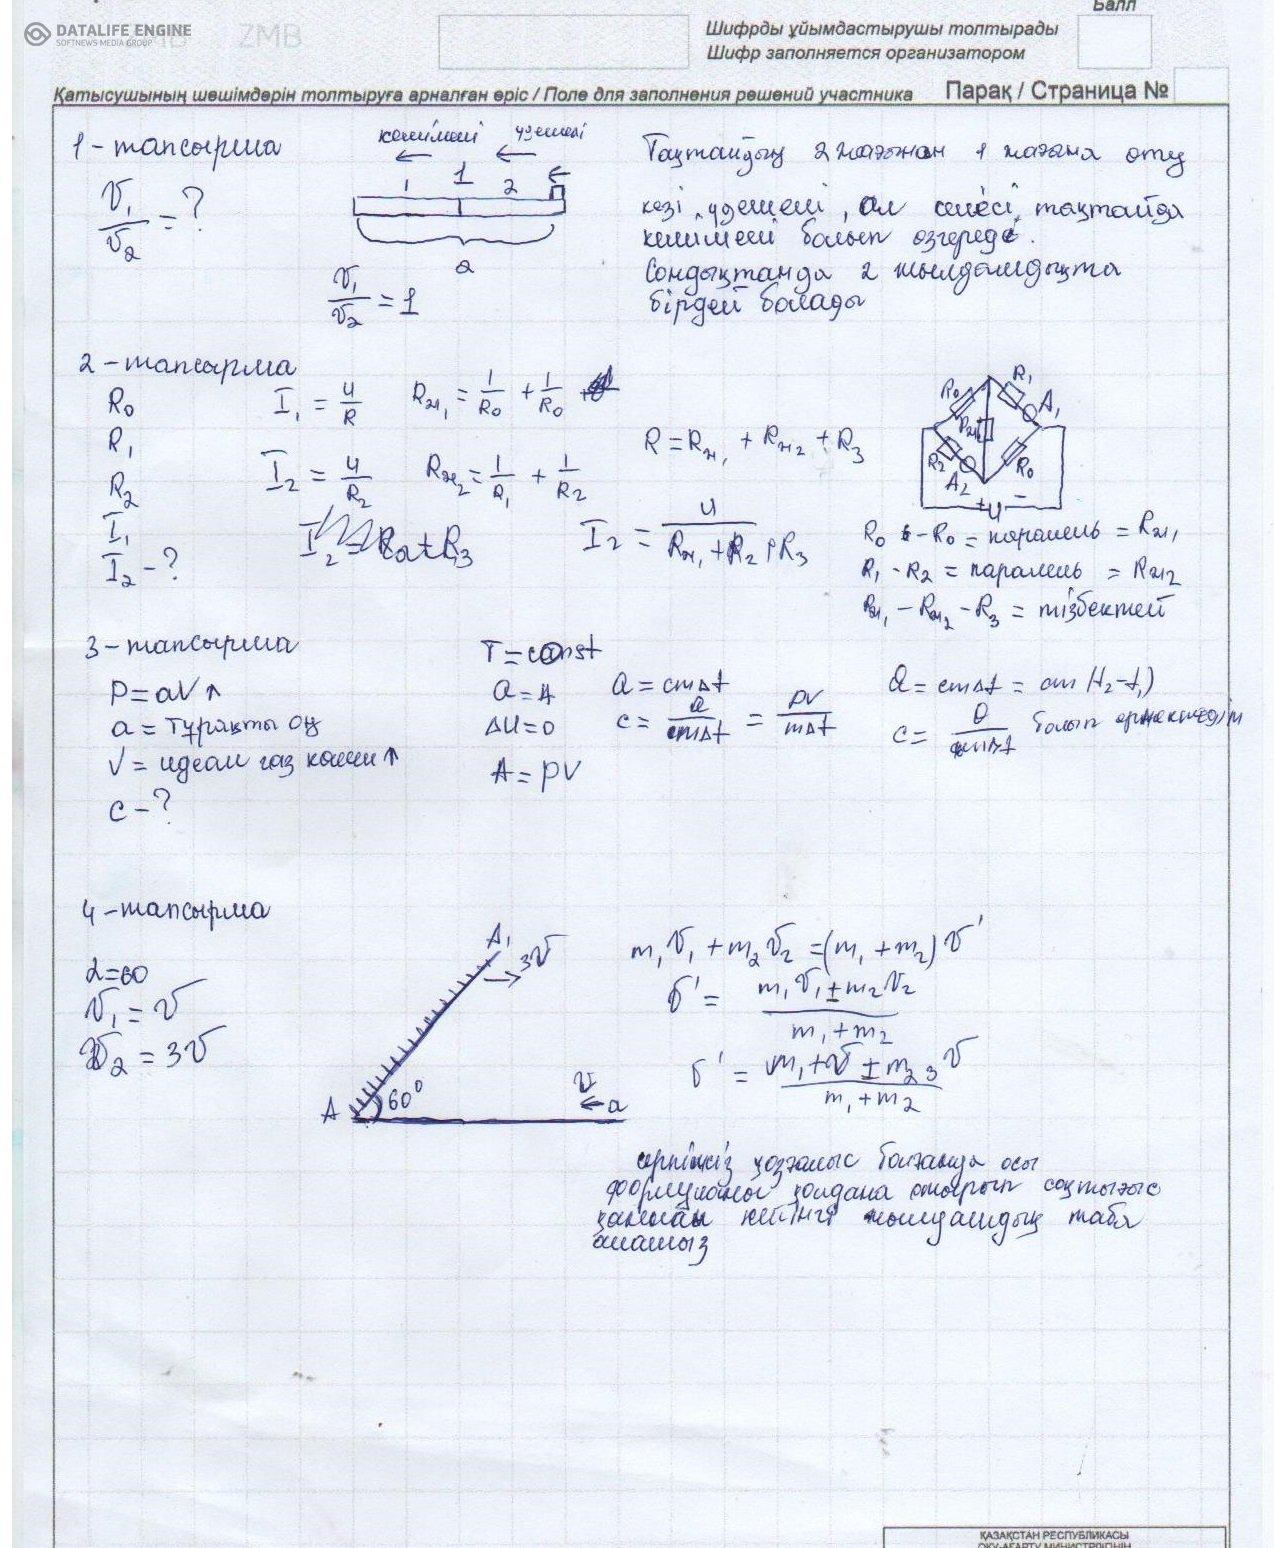 DATALIFE ENGINE
SOFTNEWS MEDIA GROUP
ZMB
Балл
Шифрды ұйымдастырушы толтырады
Шифр заполняется организатором
Қатысушының шешімдерін толтыруға арналған өріс / Поле для заполнения решений участника
Парақ / Страница №
1 - тапсырма
V₁/V₂ = ?
кемімелі үдемелі
1 1 2
a
V₁/V₂ = 1
Тақтайдың 2 жағынан 1 жағына өту
кезі үдемелі, ал келесі тақтайда
кемімелі болып өзгереді.
Сондықтанда 2 жылдамдықта
бірдей болады
2 - тапсырма
R₀
R₁
R₂
I₁
I₂ - ?
I₁ = U/R
I₂ = U/R₂
Rж₁ = 1/R₀ + 1/R₀
Rж₂ = 1/R₁ + 1/R₂
R = Rж₁ + Rж₂ + R₃
I₂ = U/(Rж₁ + R₂ + R₃)
R₀ R₁ A₁
R₂ A₂ R₀
+ U -
R₀ - R₀ = паралель = Rж₁
R₁ - R₂ = паралель = Rж₂
Rж₁ - Rж₂ - R₃ = тізбектей
3 - тапсырма
P = aV ↑
a = тұрақты оң
V = идеал газ көлемі ↑
c - ?
T = const
Q = A
ΔU = 0
A = pV
Q = cmΔt
c = Q/mΔt = pV/mΔt
Q = cmΔt = cm (t₂ - t₁)
c = Q/mΔt болып өрнектеледі
4 - тапсырма
α = 60
V₁ = V
V₂ = 3V
A₁ 3V
A 60° V a
m₁V₁ + m₂V₂ = (m₁ + m₂) V'
V' = (m₁V₁ ± m₂V₂)/(m₁ + m₂)
V' = (m₁ + V ± m₂ 3V)/(m₁ + m₂)
қозғалыс болғанда осы
формуланы қолдана отырып соқтығыс
кейінгі жылдамдық таба
аламыз
ҚАЗАҚСТАН РЕСПУБЛИКАСЫ
ОҚУ-АҒАРТУ МИНИСТРЛІГІНІҢ